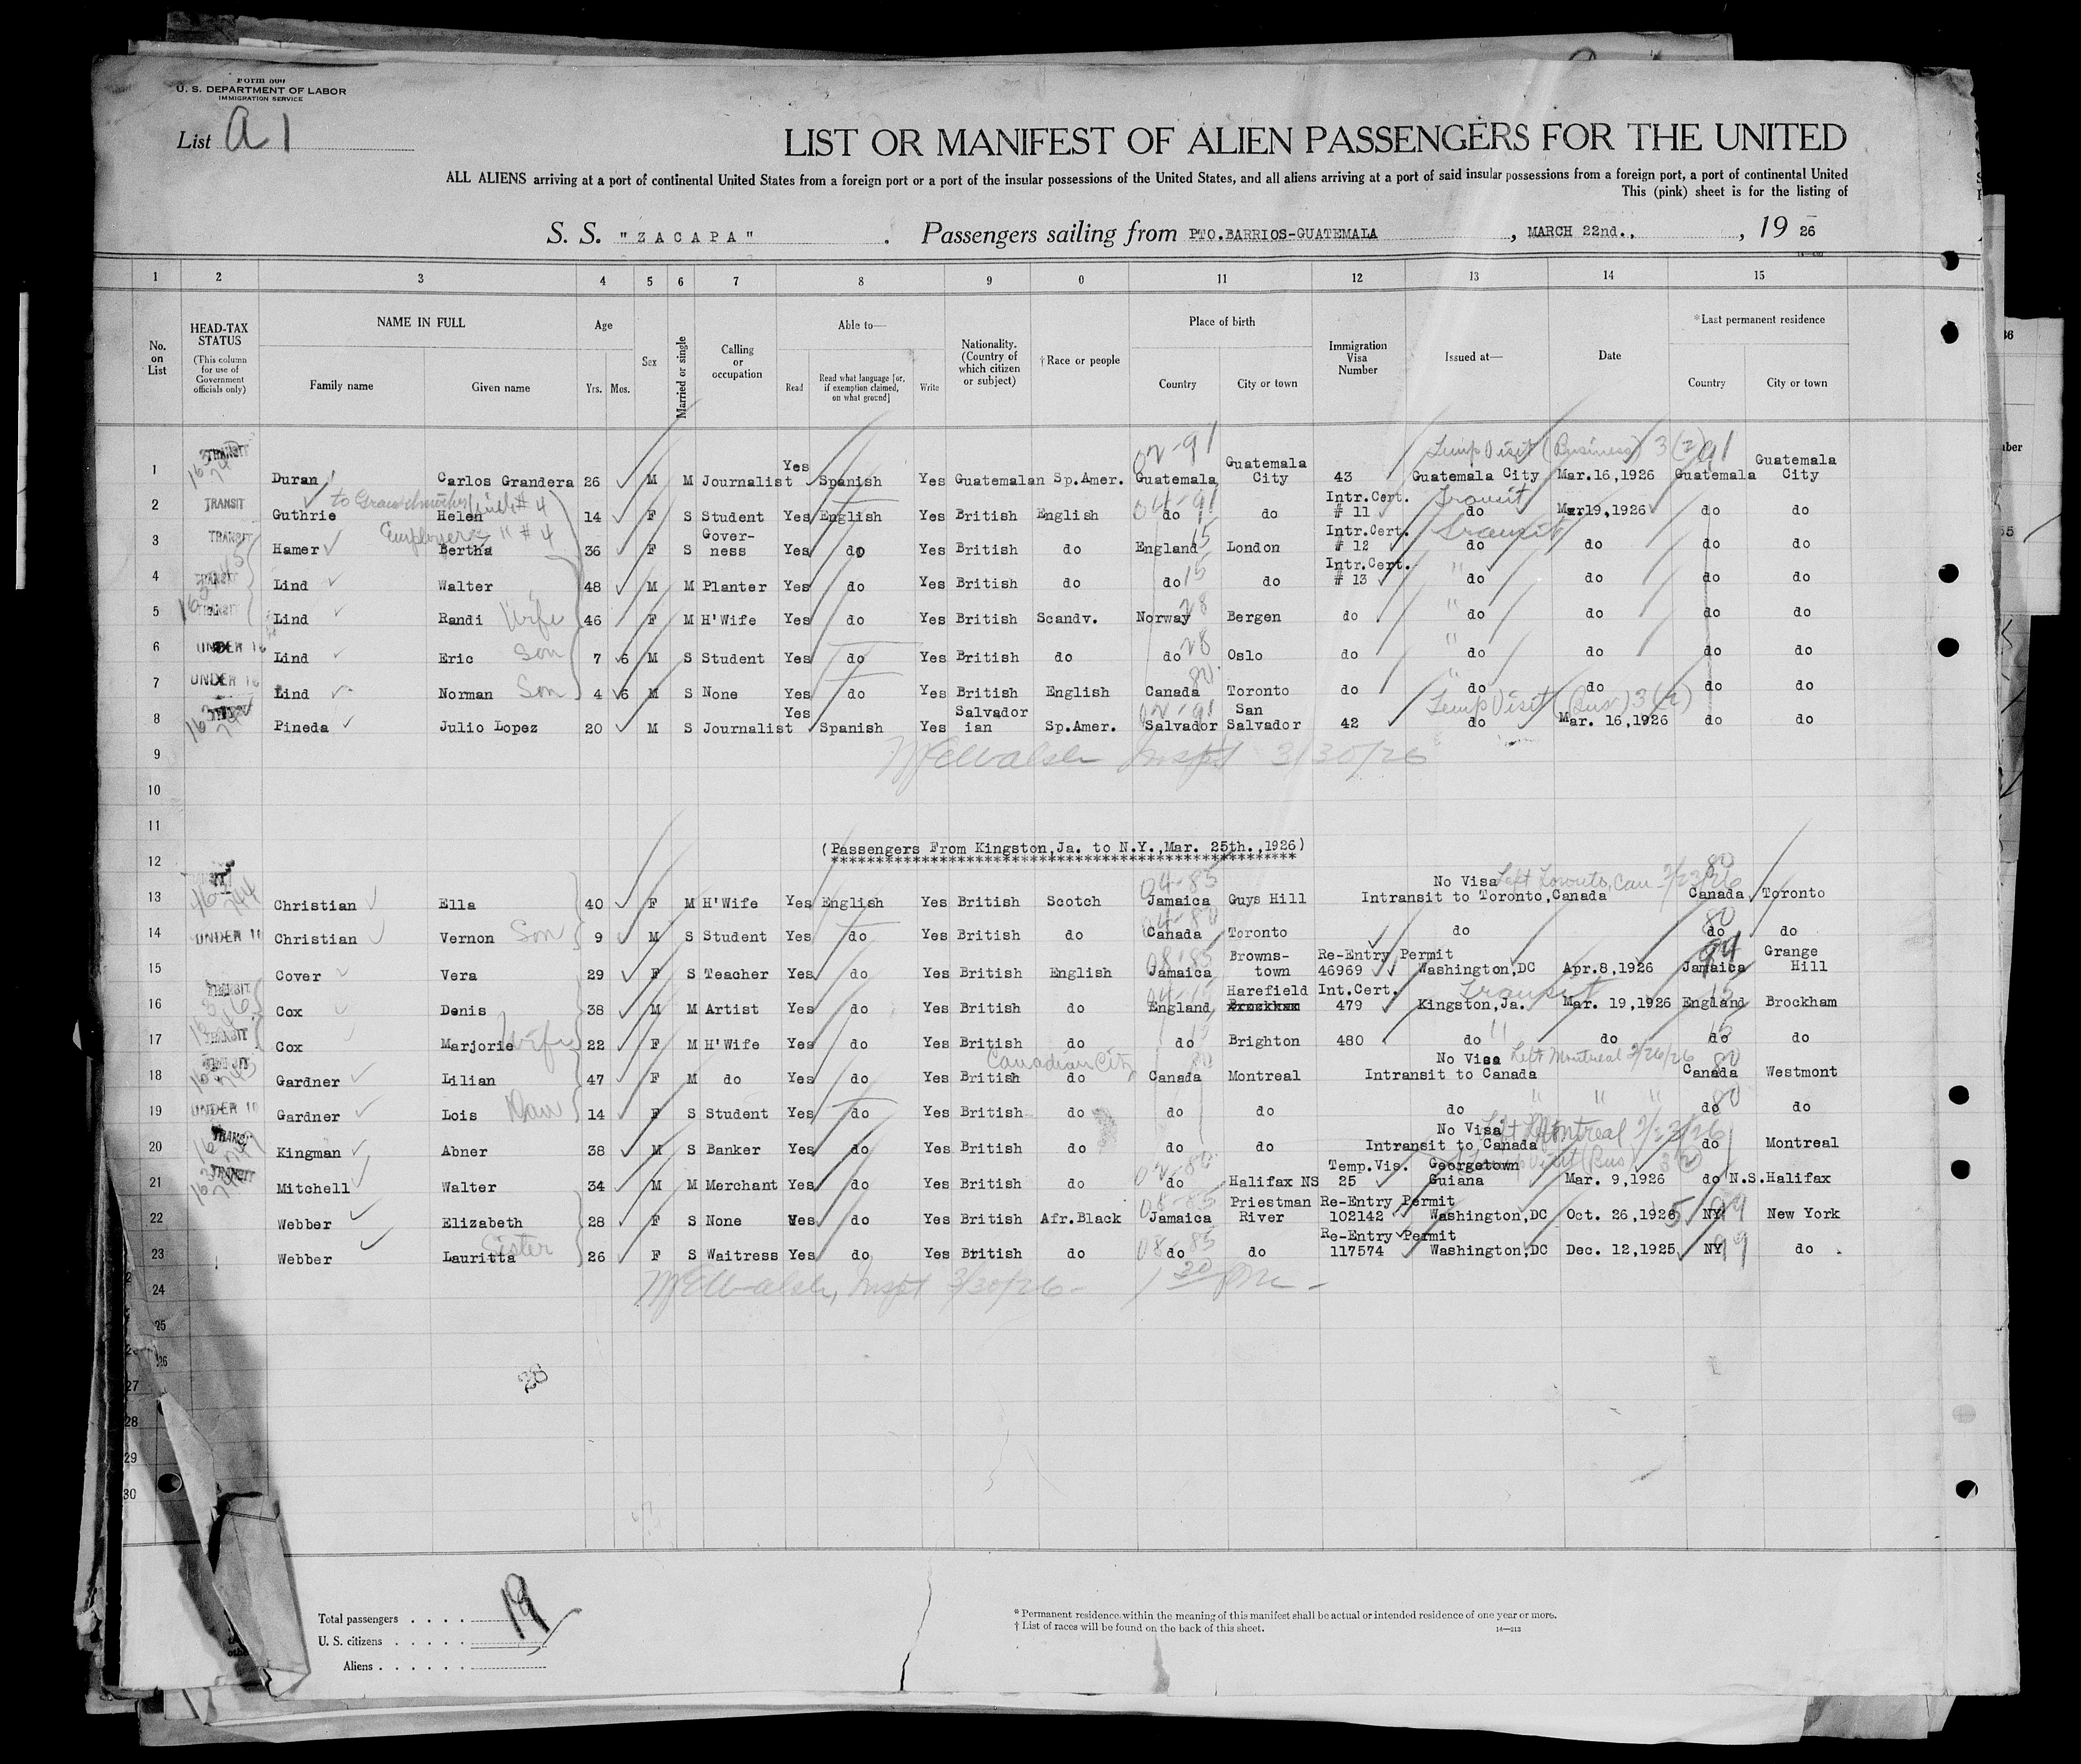 Form 500
U. S. DEPARTMENT OF LABOR
IMMIGRATION SERVICE
List A 1
LIST OR MANIFEST OF ALIEN PASSENGERS FOR THE UNITED
ALL ALIENS arriving at a port of continental United States from a foreign port or a port of the insular possessions of the United States, and all aliens arriving at a port of said insular possessions from a foreign port, a port of continental United
This (pink) sheet is for the listing of
S. S. "ZACAPA" . Passengers sailing from PTO.BARRIOS-GUATEMALA , MARCH 22nd., , 19 26
1 2 3 4 5 6 7 8 9 0 11 12 13 14 15
No. on List
HEAD-TAX STATUS (This column for use of Government officials only)
NAME IN FULL Family name Given name
Age Yrs. Mos.
Sex
Married or single
Calling or occupation
Able to— Read Read what language [or, if exemption claimed, on what ground] Write
Nationality. (Country of which citizen or subject)
†Race or people
Place of birth Country City or town
Immigration Visa Number
Issued at—
Date
*Last permanent residence Country City or town
Temp Visit (Business) 3(2) 91
1 TRANSIT Duran Carlos Grandera 26 M M Journalist Yes Spanish Yes Guatemalan Sp.Amer. 02-91 Guatemala Guatemala City 43 Guatemala City Mar.16,1926 Guatemala Guatemala City
to Grandmother with # 4
2 TRANSIT Guthrie Helen 14 F S Student Yes English Yes British English 04-91 do do Intr.Cert. # 11 Transit do Mar19,1926 do do
Employer " # 4
3 TRANSIT Hamer Bertha 36 F S Gover-ness Yes do Yes British do 15 England London Intr.Cert. # 12 Transit do do do do
4 TRANSIT Lind Walter 48 M M Planter Yes do Yes British do do 15 do Intr.Cert. # 13 " do do do do
5 TRANSIT Lind Randi Wife 46 F M H'Wife Yes do Yes British Scandv. Norway 28 Bergen do " do do do do
6 UNDER 16 Lind Eric Son 7 6 M S Student Yes do Yes British do do 28 Oslo do " do do do do
7 UNDER 16 Lind Norman Son 4 6 M S None Yes do Yes British English Canada 80 Toronto do " do do do do
Temp Visit (Bus.) 3(2)
8 Pineda Julio Lopez 20 M S Journalist Yes Spanish Yes Salvador ian Sp.Amer. 02-91 Salvador San Salvador 42 do Mar. 16,1926 do do
9 Inspt 3/30/26
10
11
(Passengers From Kingston,Ja. to N.Y.,Mar. 25th.,1926)
12 ****************************************************
13 Christian Ella 40 F M H'Wife Yes English Yes British Scotch 04-85 Jamaica Guys Hill No Visa Left Toronto, Can Intransit to Toronto,Canada 80 Canada Toronto
14 UNDER 16 Christian Vernon Son 9 M S Student Yes do Yes British do 04-80 Canada Toronto do 80 do do
15 Cover Vera 29 F S Teacher Yes do Yes British English 08-85 Jamaica Browns-town Re-Entry Permit 46969 Washington,DC Apr.8,1926 Jamaica Grange Hill
16 TRANSIT Cox Denis 38 M M Artist Yes do Yes British do 04-15 England Harefield Int.Cert. 479 Transit Kingston,Ja. Mar. 19,1926 15 England Brockham
17 TRANSIT Cox Marjorie Wife 22 F M H'Wife Yes do Yes British do do 15 Brighton 480 do " do do 15 do
Canadian Citz
18 TRANSIT Gardner Lilian 47 F M do Yes do Yes British do Canada 80 Montreal No Visa Left Montreal 2/26/26 Intransit to Canada 80 Canada Westmont
19 UNDER 16 Gardner Lois Dau 14 F S Student Yes do Yes British do do do do " " " do 80 do
20 TRANSIT Kingman Abner 38 M S Banker Yes do Yes British do do do No Visa Left Montreal 2/23/26 Intransit to Canada do Montreal
21 TRANSIT Mitchell Walter 34 M M Merchant Yes do Yes British do 02-80 do Halifax NS Temp.Vis. 25 Georgetown Guiana Temp Visit (Bus) 3(2) Mar. 9,1926 do N.S.Halifax
22 Webber Elizabeth 28 F S None Yes do Yes British Afr.Black 08-85 Jamaica Priestman River Re-Entry Permit 102142 Washington,DC Oct. 26,1925 NY New York
23 Webber Lauritta Sister 26 F S Waitress Yes do Yes British do 08-85 do do Re-Entry Permit 117574 Washington,DC Dec. 12,1925 NY 99 do .
24 Inspt 3/30/26 - 1 30 PM -
25
26
27
28
29
30
Total passengers . . . . 19
U. S. citizens . . . . .
Aliens . . . . . .
* Permanent residence within the meaning of this manifest shall be actual or intended residence of one year or more.
† List of races will be found on the back of this sheet. 14—213